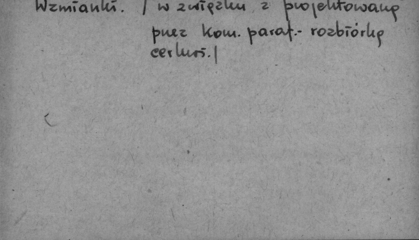 Wzmianki. / w związku z projektowaną
przez Kom. paraf.- rozbiórką
cerkwi./